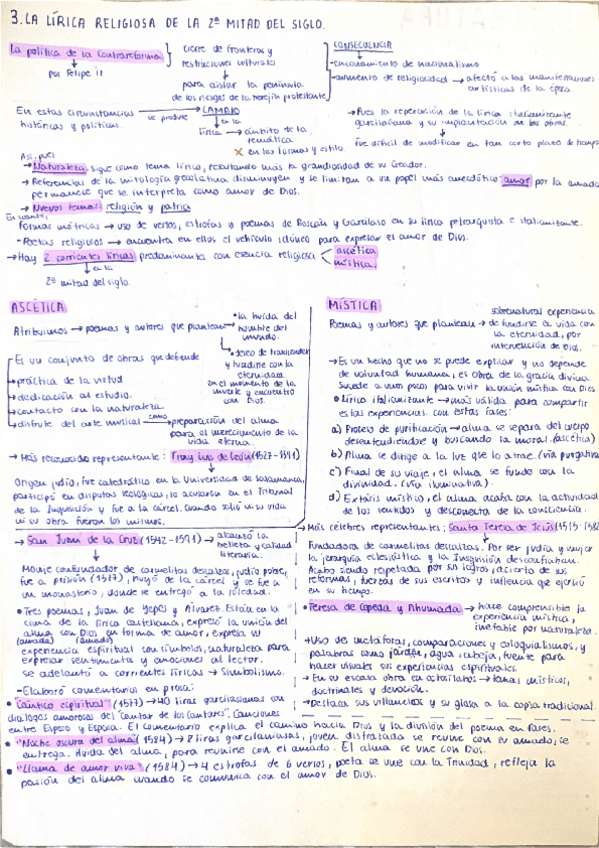 3. LA LÍRICA RELIGIOSA DE LA 2ª MITAD DEL SIGLO.
La política de la Contrarreforma
↓
por Felipe II
cierre de fronteras y
restricciones culturales
↓
para aislar la península
de los riesgos de la herejía protestante
CONSECUENCIA
-encaramiento de nacionalismo
-aumento de religiosidad → afectó a las manifestaciones
artísticas de la época
En estas circunstancias
históricas y políticas.
se produce → CAMBIO
en la
lírica → ámbito de la
temática
X en las formas y estilo.
→ Pues la repercusión de la lírica italianizante
garcilasiana y su implantación en las obras.
↓
fue difícil de modificar en tan corto plazo de tiempo
Así, pues
→ Naturaleza sigue como tema lírico, resaltando más la grandiosidad de su Creador.
→ Referencias de la mitología grecolatina disminuyen y se limitan a un papel más anecdótico: amor por la amada
permanece que se interpreta como amor de Dios.
→ Nuevos temas: religión y patria
En cuanto,
Formas métricas → uso de versos, estrofas y poemas de Boscán y Garcilaso en su lírica petrarquista e italianizante.
-Poetas religiosos → encuentra en ellos el vehículo idóneo para expresar el amor de Dios.
→ Hay 2 corrientes líricas predominantes con esencia religiosa
ascética
mística.
↓ en la
2ª mitad del siglo
ASCÉTICA
Atribuimos → poemas y autores que plantean
• la huida del
hombre del
mundo.
• deseo de trascender
y fundirse con la
eternidad.
en el momento de la
muerte y encuentro
con Dios.
Es un conjunto de obras que defiende
→ práctica de la virtud
→ dedicación al estudio.
→ contacto con la naturaleza.
→ disfrute del arte musical como → preparación del alma
para el merecimiento de la
vida eterna.
→ Más reconocido representante: Fray Luis de León (1527-1591)
Origen judío, fue catedrático en la Universidad de Salamanca,
participó en disputas teológicas, lo acusaron en el Tribunal
de la Inquisición y fue a la cárcel. Cuando salió ni su vida
ni su obra fueron los mismos.
MÍSTICA
Poemas y autores que plantean → sobrenatural experiencia
de fundirse la vida con
la eternidad, por
intervención de Dios.
→ Es un hecho que no se puede explicar y no depende
de voluntad humana, es obra de la gracia divina
Sucede a unos pocos para vivir la unión mística con Dios
• Lírica italianizante → más válida para compartir
estas experiencias con estas fases:
a) Proceso de purificación → alma se separa del cuerpo
desentendiéndose y buscando la moral. (ascética)
b) Alma se dirige a la luz que lo atrae. (vía purgativa)
c) Final de su viaje, el alma se funde con la
divinidad. (vía iluminativa).
d) Éxtasis místico, el alma acaba con la actividad
de los sentidos y desconecta de la consciencia.
→ San Juan de la Cruz (1542-1591) → alcanzó la
belleza y calidad
literaria.
Monje cofundador de carmelitas descalzas, judío pobre,
fue a prisión (1577), huyó de la cárcel y se fue a
un monasterio, donde se entregó a la soledad.
• Tres poemas, Juan de Yepes y Álvarez. Están en la
cima de la lírica castellana, expresó la unión del
alma con Dios en forma de amor, expresa su
(amada) (amado)
experiencia espiritual con símbolos, naturaleza para
expresar sentimientos y emociones al lector.
se adelantó a corrientes líricas → simbolismo.
-Elaboró comentarios en prosa:
• "Cántico espiritual" (1577) → 40 liras garcilasianas con
diálogos amorosos del "Cantar de los Cantares", canciones
entre Esposo y Esposa. El comentario explica el camino hacia Dios y la división del poema en fases.
• "Noche oscura del alma" (1584) → 8 liras garcilasianas, joven disfrazada se reúne con su amado, se
entrega. Huida del alma, para reunirse con el amado. El alma se une con Dios.
• "Llama de amor viva" (1584) → 4 estrofas de 6 versos, poeta se une con la Trinidad, refleja la
pasión del alma cuando se comunica con el amor de Dios.
→ Más célebres representantes: Santa Teresa de Jesús (1515-1582)
Fundadora de carmelitas descalzas. Por ser judía y mujer
la jerarquía eclesiástica y la Inquisición desconfiaban.
Acabó siendo respetada por sus logros, acierto de sus
reformas, fuerzas de sus escritos y influencia que ejerció
en su tiempo.
• Teresa de Cepeda y Ahumada → hace comprensible la
experiencia mística,
inefable por naturaleza.
→ Uso de metáforas, comparaciones y coloquialismos, y
palabras como jardín, agua, abeja, fuente para
hacer visuales sus experiencias espirituales
→ En su escasa obra en octosílabos → temas místicos,
doctrinales y devoción.
→ Destaca sus villancicos y su glosa a la copla tradicional.